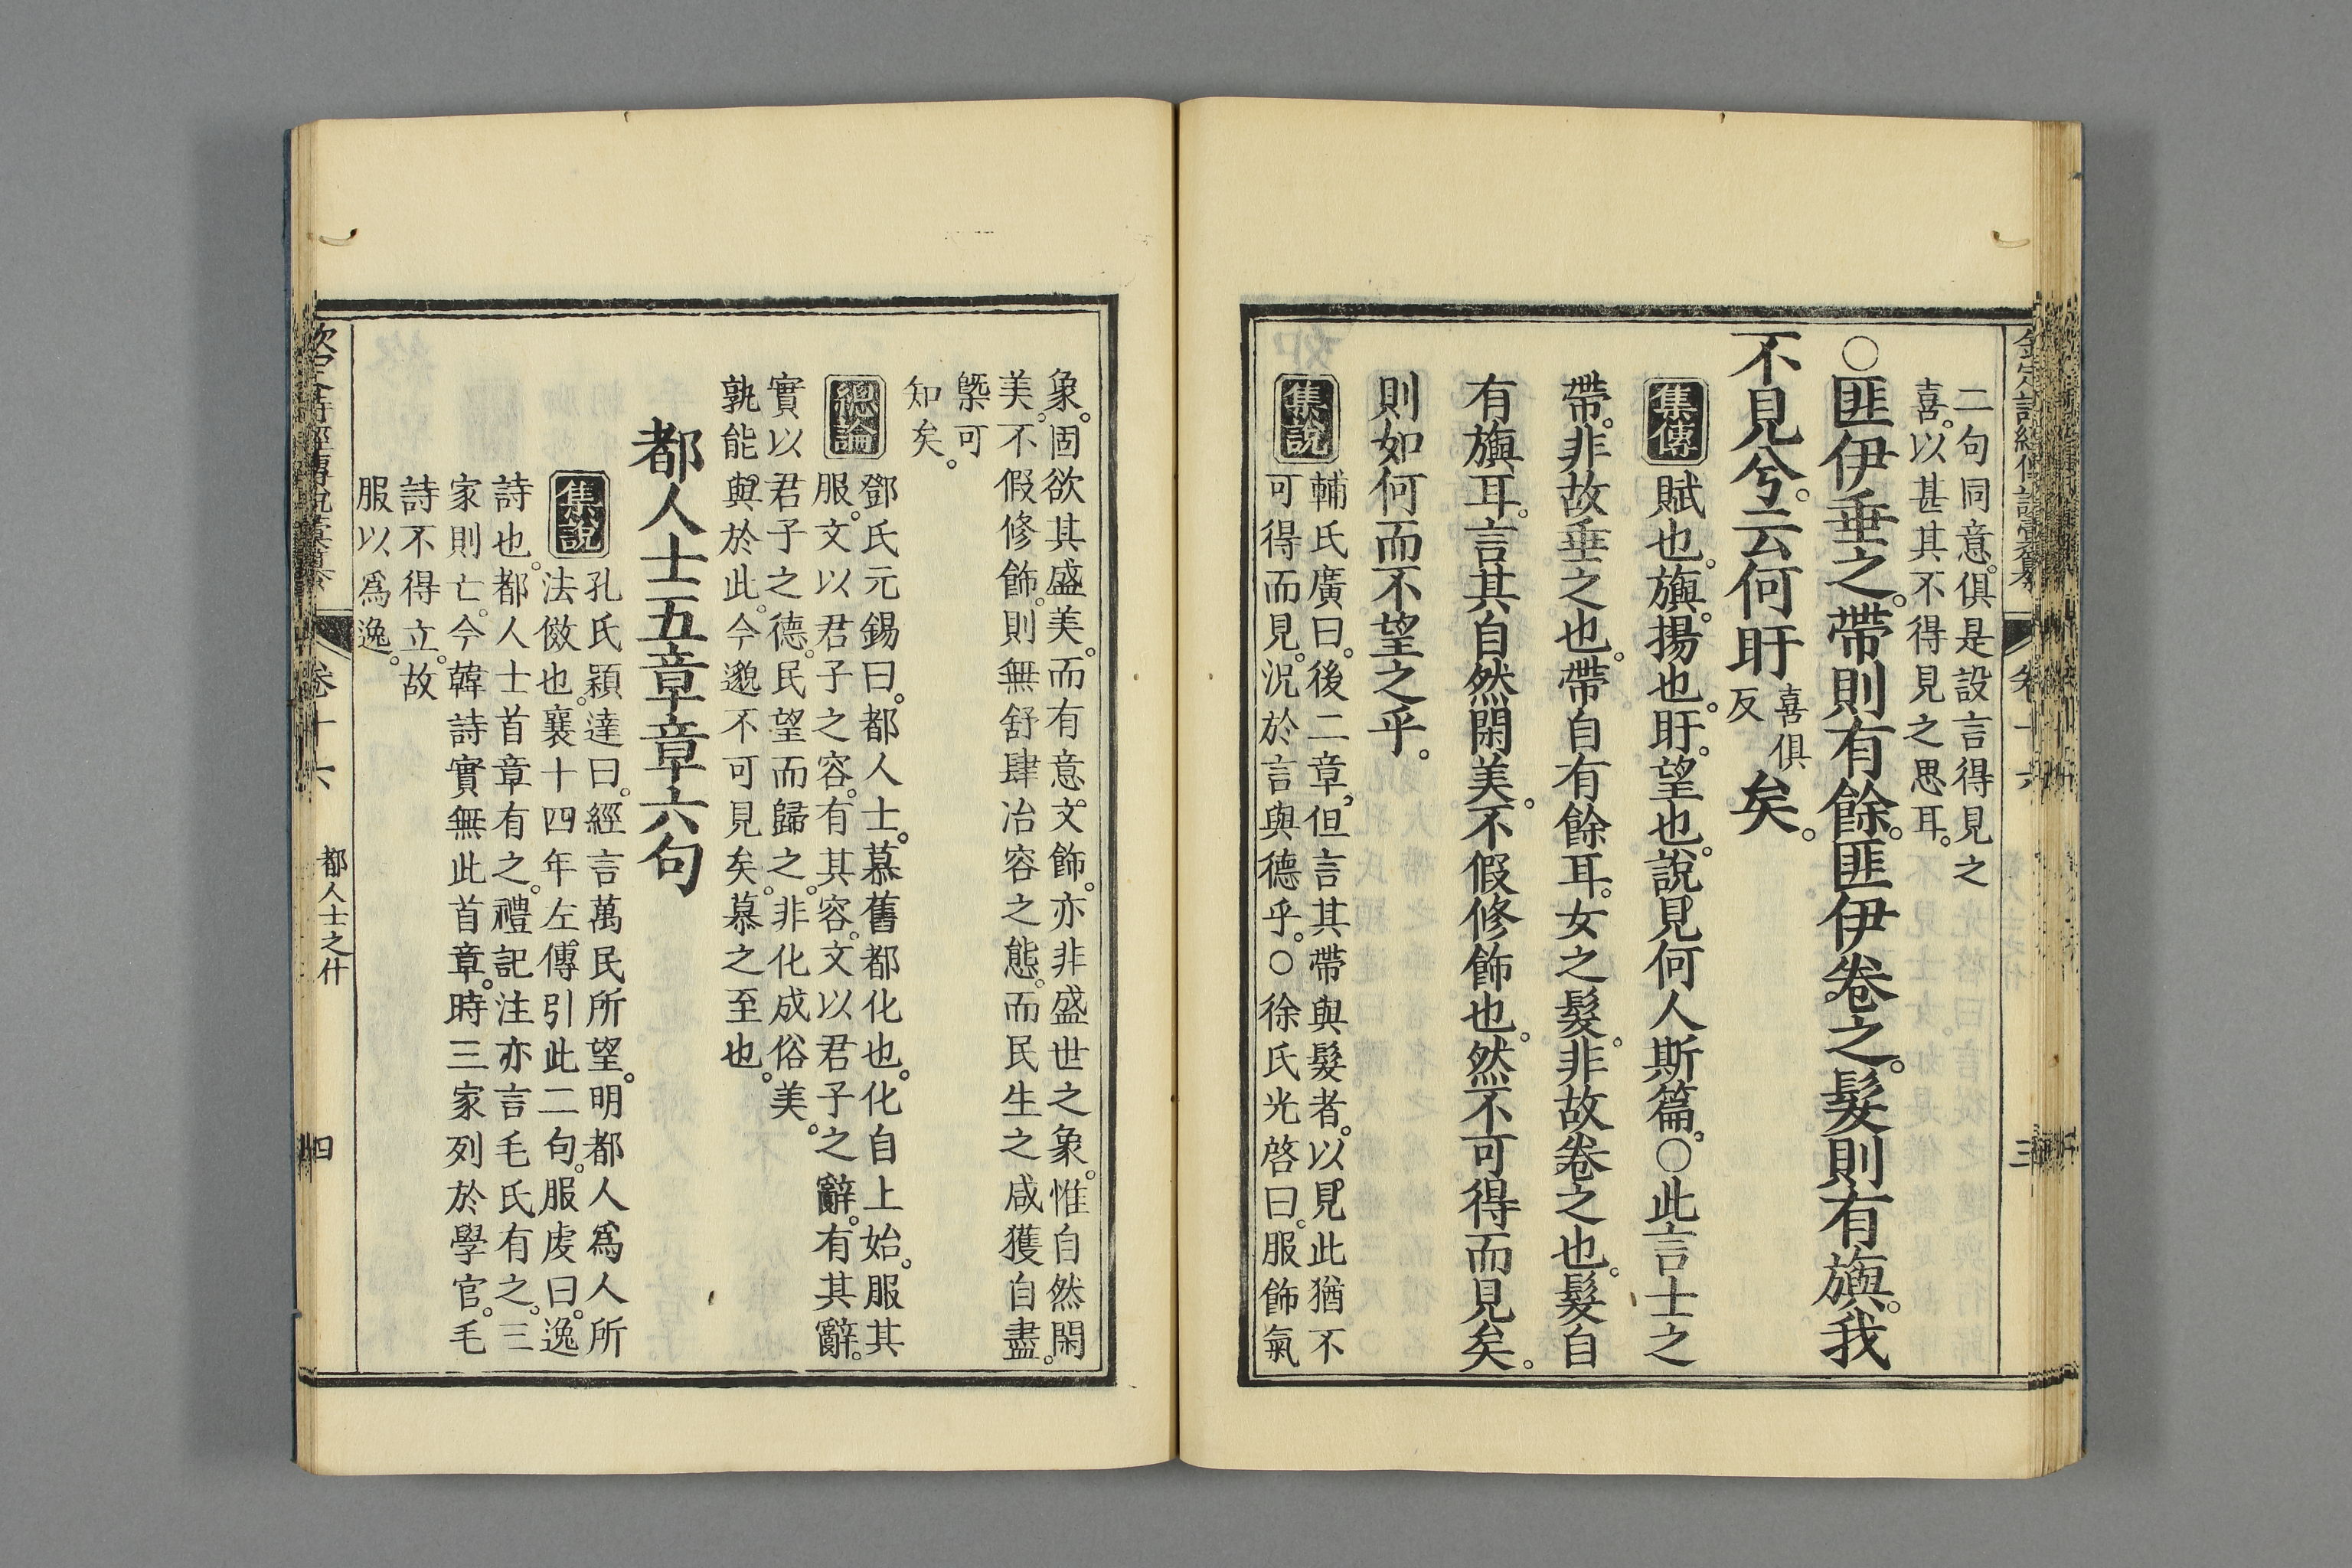 二句同意。俱是設言得見之
喜。以甚其不得見之思耳。
○匪伊垂之。帶則有餘。匪伊卷之。髮則有旟。我
不見兮。云何盱喜俱反矣。
集傳 賦也。旟。揚也。盱。望也。說見何人斯篇。○此言士之
帶。非故垂之也。帶自有餘耳。女之髮。非故卷之也。髮自
有旟耳。言其自然閑美。不假修飾也。然不可得而見矣。
則如何而不望之乎。
集說 輔氏廣曰。後二章。但言其帶與髮者。以見此猶不
可得而見。況於言與德乎。○徐氏光啓曰。服飾氣
象。固欲其盛美。而有意文飾。亦非盛世之象。惟自然閑
美。不假修飾。則無舒肆冶容之態。而民生之咸獲自盡。
槩可
知矣。
總論 鄧氏元錫曰。都人士。慕舊都化也。化自上始。服其
服。文以君子之容。有其容。文以君子之辭。有其辭。
實以君子之德。民望而歸之。非化成俗美。
孰能與於此。今邈不可見矣。慕之至也。
都人士五章章六句
集說 孔氏穎達曰。經言萬民所望。明都人爲人所
法傚也。襄十四年左傳引此二句。服虔曰。逸
詩也。都人士首章有之。禮記注亦言毛氏有之。三
家則亡。今韓詩實無此首章。時三家列於學官。毛
詩不得立。故
服以爲逸。
卷十六
都人士之什
四